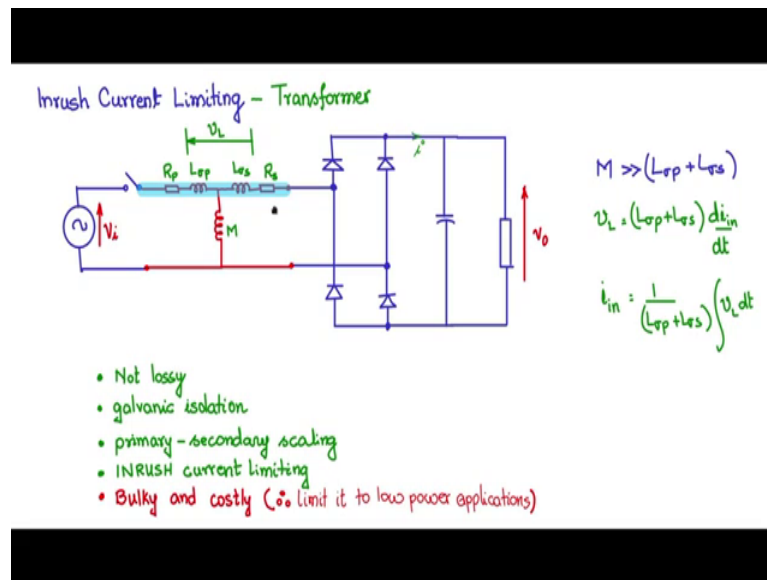 Inrush Current Limiting - Transformer
v_L
R_p L_σp L_σs R_s
i
M
V_i
v_o
M >> (L_σp + L_σs)
v_L = (L_σp + L_σs) di_in/dt
i_in = 1/(L_σp + L_σs) ∫ v_L dt
• Not lossy
• galvanic isolation
• primary-secondary scaling
• INRUSH current limiting
• Bulky and costly (∴ limit it to low power applications)